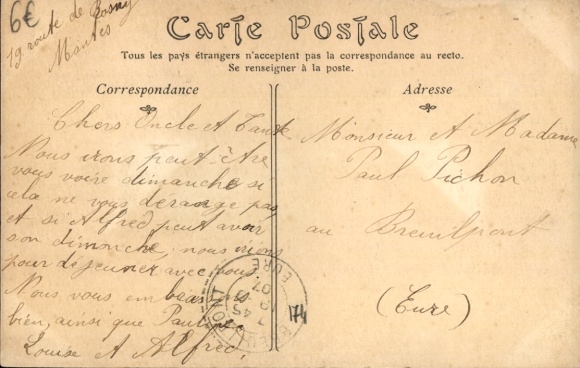 6€
19 route de Rosny
Mantes
Carte Postale
Tous les pays étrangers n'acceptent pas la correspondance au recto.
Se renseigner à la poste.
Correspondance
Chers Oncle et Tante
Nous irons peut-être
vous voire dimanche si
cela ne vous dérange pas
et si Alfred peut avoir
son dimanche, nous irions
pour déjeuner avec vous.
Nous vous embrassons
bien, ainsi que Pauline.
Louise et Alfred,
Adresse
Monsieur et Madame
Paul Pichon
au Breuilpont
(Eure)
EURE
7 45
07
174